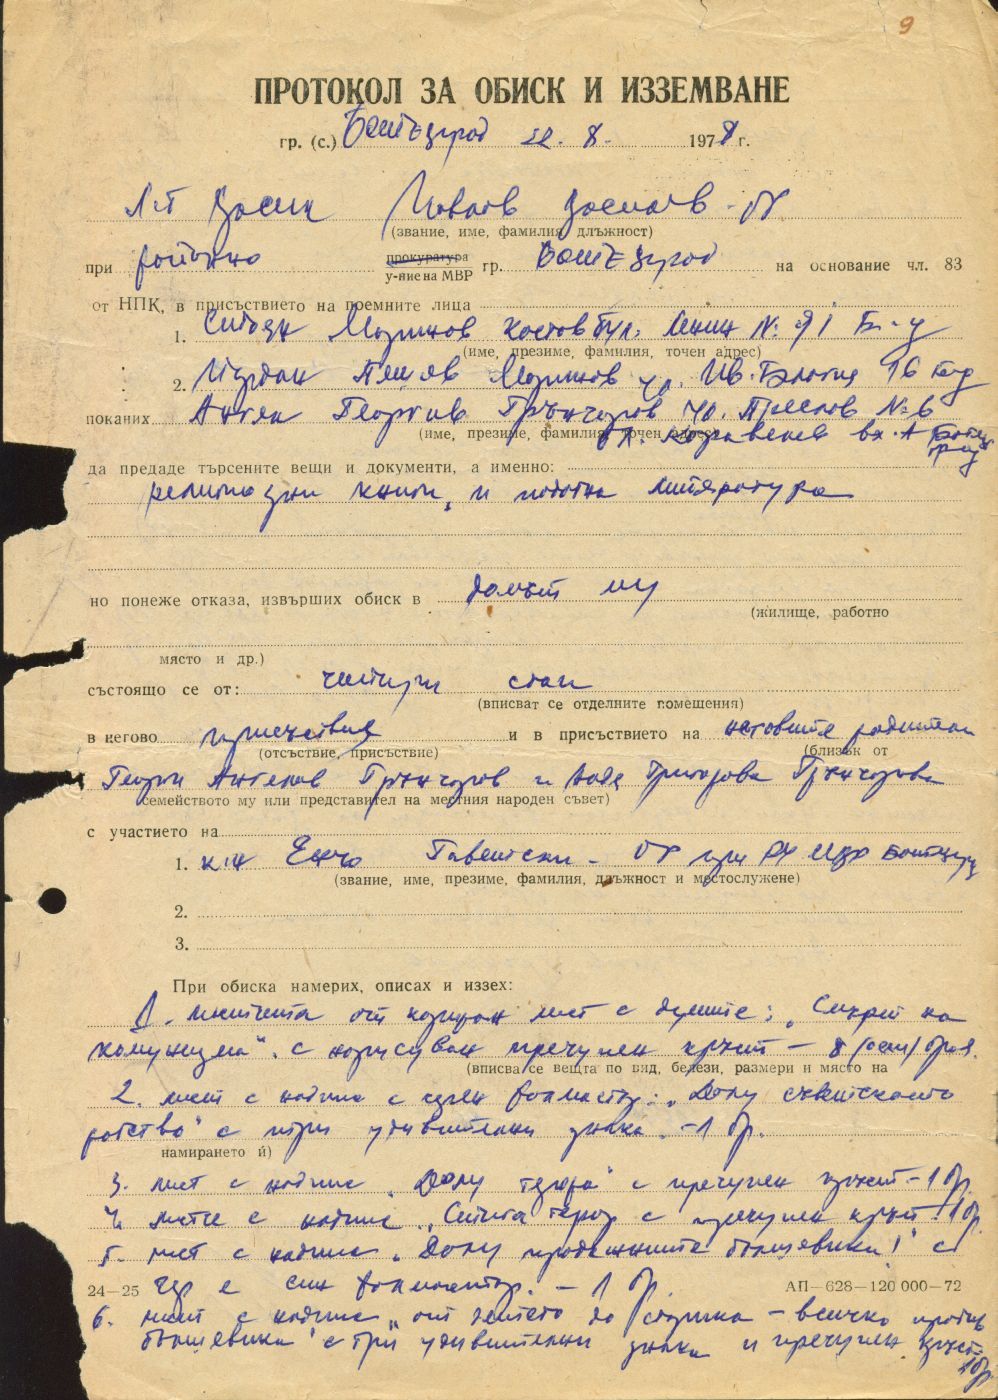 9
ПРОТОКОЛ ЗА ОБИСК И ИЗЗЕМВАНЕ
гр. (с.) Ботевград 22. 8. 1978 г.
Л-т Иванов
(звание, име, фамилия, длъжност)
при районно прокуратура
у-ние на МВР гр. Ботевград на основание чл. 83
от НПК, в присъствието на поемните лица
1. Стоян Маринов Костов бул. Ленин № 91 Б-д
(име, презиме, фамилия, точен адрес)
2. Йордан Пешев Маринов ул. 16
поканих Ангел Георгиев Грънчаров ул. Преслав № 6
(име, презиме, фамилия, точен адрес) бл. Каравелов вх. А Ботев
град
да предаде търсените вещи и документи, а именно:
религиозни книги, и подобна литература
но понеже отказа, извърших обиск в домът му
(жилище, работно
място и др.)
състоящо се от: четири стаи
(вписват се отделните помещения)
в негово присъствие и в присъствието на неговите родители
(отсъствие, присъствие) (близък от
Георги Ангелов Грънчаров и Григорова Грънчарова
семейството му или представител на местния народен съвет)
с участието на
1. к-н Енчо при РУ МВР Ботевград
(звание, име, презиме, фамилия, длъжност и местослужене)
2.
3.
При обиска намерих, описах и иззех:
1. листчета от кариран лист с думите: „Смърт на
комунизма“ с нарисуван пречупен кръст – 8 (осем) броя.
(вписва се вещта по вид, белези, размери и място на
2. лист с надпис с флумастер: „Долу съветското
робство“ с три удивителни знака. – 1 бр.
намирането ѝ)
3. лист с надпис „Долу с пречупен кръст – 1 бр.
4. лист с надпис „ с пречупен кръст. 1 бр.
5. лист с надпис „Долу продажните болшевики!“ с
24—25 син флумастер. – 1 бр. АП—628—120 000—72
6. лист с надпис „от детето до старика – всичко против
болшевика“ с три удивителни знака и пречупен кръст
1 бр.